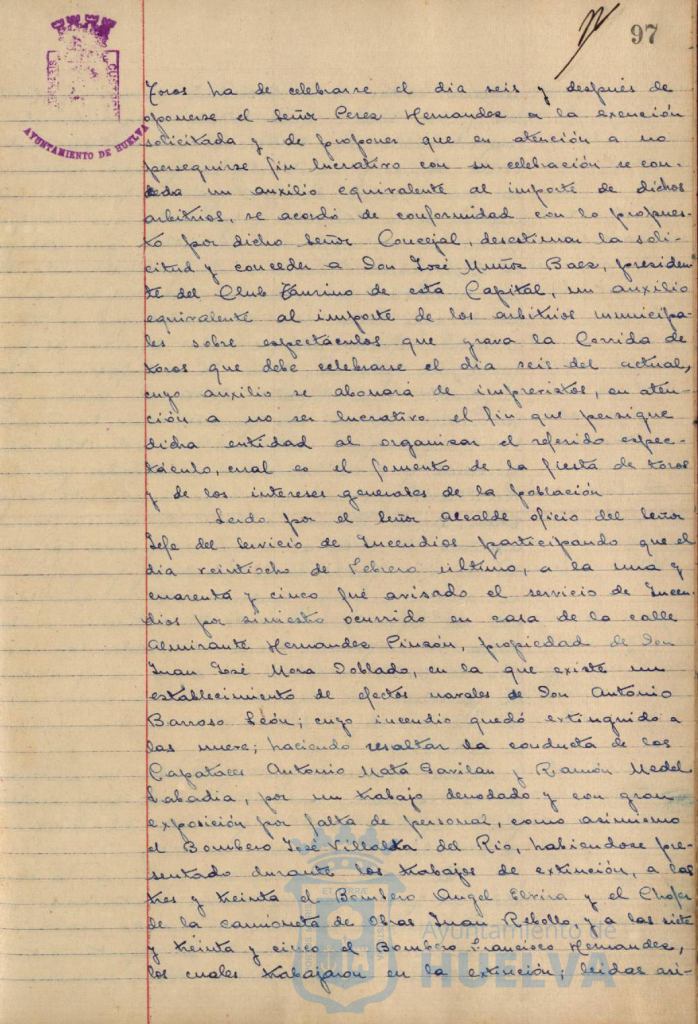 97
AYUNTAMIENTO DE HUELVA
Toros ha de celebrarse el dia seis y después de
oponerse el Señor Perez Hernandez a la exención
solicitada y de proponer que en atención a no
perseguirse fin lucrativo con su celebración se con-
ceda un auxilio equivalente al importe de dichos
arbitrios, se acordó de conformidad con lo propues-
to por dicho Señor Concejal, desestimar la soli-
citud y conceder a Don José Muñoz Baez, presiden-
te del Club Taurino de esta Capital, un auxilio
equivalente al importe de los arbitrios municipa-
les sobre espectáculos que grava la Corrida de
toros que debe celebrarse el dia seis del actual,
cuyo auxilio se abonará de imprevistos, en aten-
ción a no ser lucrativo el fin que persigue
dicha entidad al organizar el referido espec-
táculo, cual es el fomento de la fiesta de toros
y de los intereses generales de la población
Leido por el Señor Alcalde oficio del Señor
Jefe del Servicio de Incendios participando que el
dia veintiocho de Febrero último, a la una y
cuarenta y cinco fué avisado el servicio de Incen-
dios por siniestro ocurrido en casa de la calle
Almirante Hernandez Pinzón, propiedad de Don
Juan José Mora Doblado, en la que existe un
establecimiento de efectos navales de Don Antonio
Barroso León; cuyo incendio quedó extinguido a
las nueve; haciendo resaltar la conducta de los
Capataces Antonio Mata Gavilan y Ramón Medel
Labadia, por un trabajo denodado y con gran
exposición por falta de personal, como asimismo
el Bombero José Villalda del Rio, habiendose pre-
sentado durante los trabajos de extinción, a las
tres y treinta el Bombero Angel Elvira y el Chofer
de la camioneta de Obras Juan Rebollo, y a las siete
y treinta y cinco el Bombero Francisco Hernandez,
los cuales trabajaron en la extinción; leidas asi-
Ayuntamiento de
HUELVA